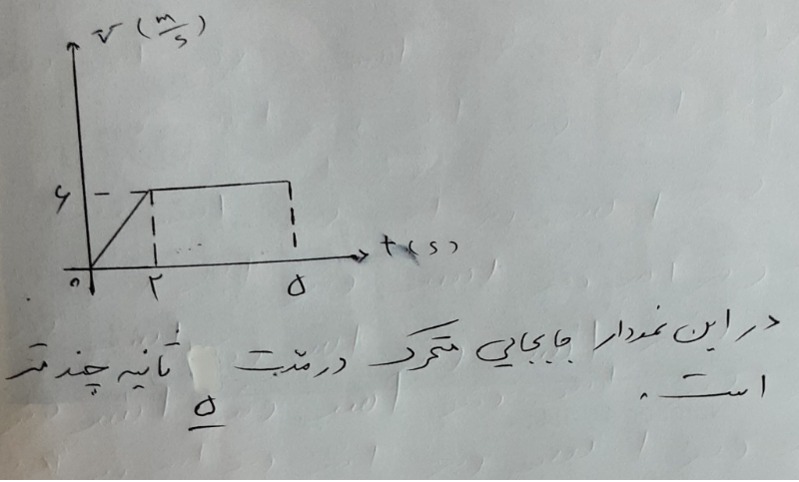 v (m/s)
۶
t(s)
۰ ۲ ۵
در این نمودار جابجایی متحرک در مدت ۵ ثانیه چند متر
است.